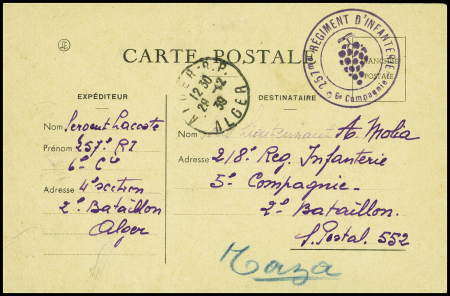 CARTE POSTALE
257me RÉGIMENT D'INFANTERIE
6e Compagnie
AFFRANCHIR
POSTALE
ALGER R.P.
12 30
29 -12
39
ALGER
EXPÉDITEUR
Nom Sergent Lacoste
Prénom 257e RI
6e Cie
Adresse 4e section
2e Bataillon
Alger
DESTINATAIRE
Nom Lieutenant A. Molia
218e Reg. Infanterie
Adresse 5e Compagnie
2e Bataillon.
S. Postal 552
Taza